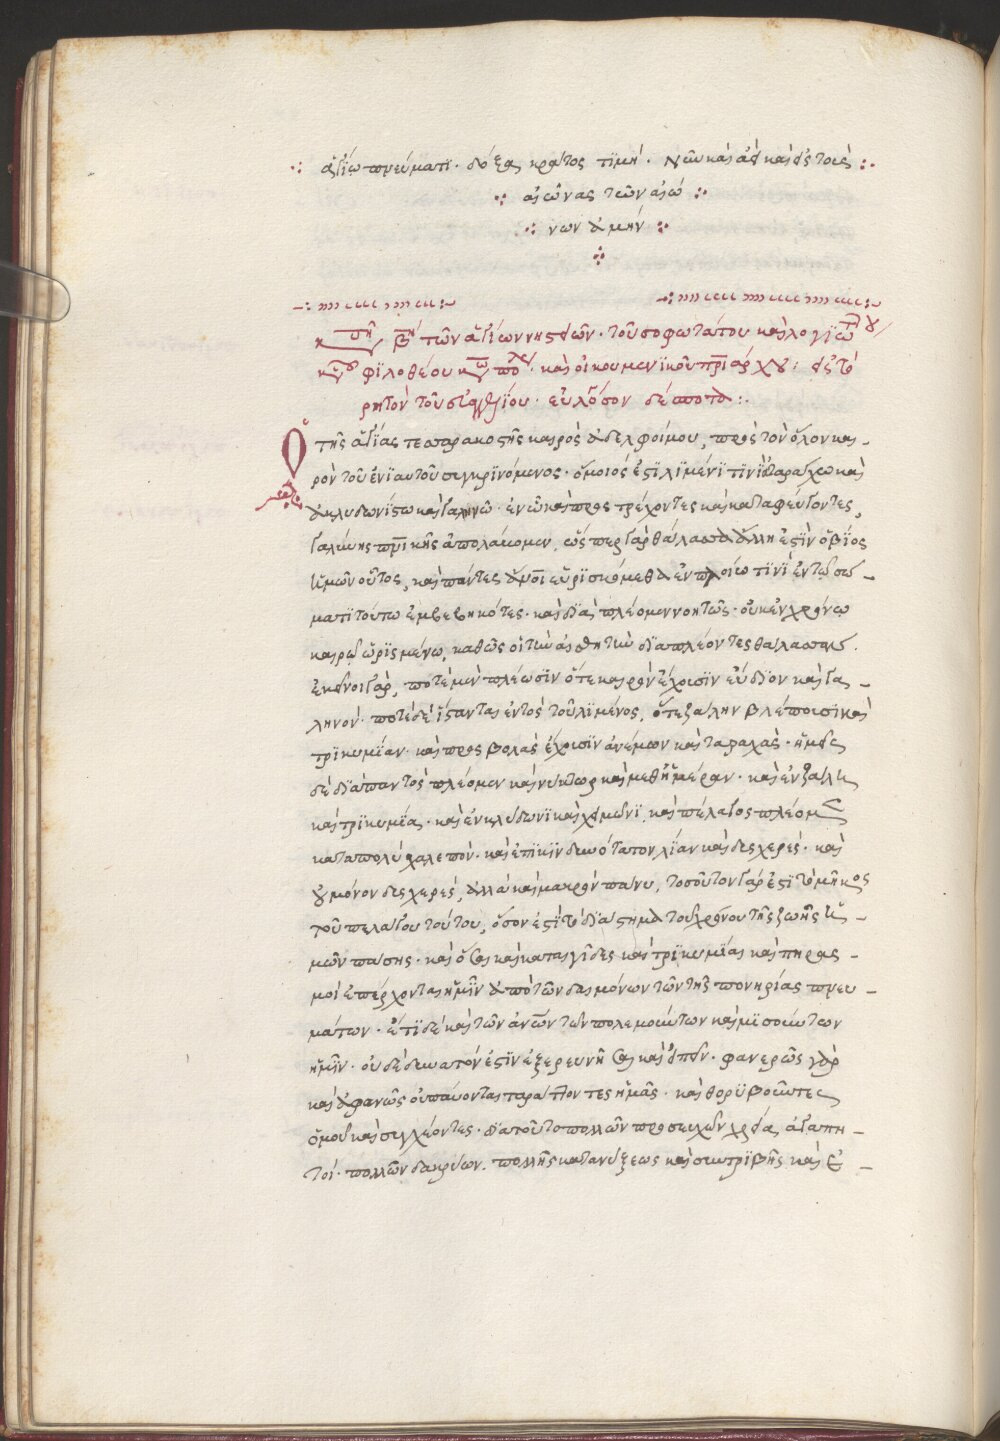 ἁγίω πνεύματι· δόξα κράτος τϊμή· νῦν καὶ ἀεὶ καὶ εἰς τοὺς
αἰῶνας τῶν αἰώ
νων ἀμήν
κυ β τῶν ἁγίων νηστειῶν· τοῦ σοφωτάτου καὶ λογϊω
φϊλοθέου κω πο · καὶ οἰκουμενϊκοῦ πρϊάρχου· εἰς τὸ
ρητὸν τοῦ εὐαγγελίου· εὐλόγησον δέσποτα:
Ὁ τῆς ἁγίας τεσσαρακοστῆς καιρὸς ἀδελφοίμου, πρὸς τὸν ὅλον και
ρὸν τοῦ ἐνϊαυτοῦ συγκρϊνόμενος· ὅμοιός ἐστϊ λϊμένϊ τϊνὶ ἀταράχω καὶ
ἀκλυδωνίστω καὶ γαληνῶ· ἐν ὧ καὶ προς τρέχοντες καὶ καταφεύγοντες,
γαλήνης πνικῆς ἀπολαύομεν, ὥσπερ γὰρ θάλασσα ἄλλη ἐστϊν ὁ βϊος
ἡμῶν οὗτος, καὶ πάντες ἄνοι εὑρϊσκόμεθα ἐν πλοίω τϊνὶ ἐν τῶ σώ
ματϊ τούτω ἐμβεβηκότες· καὶ δϊαπλέομεν νοητῶς· οὐκ ἐν χρόνω
καιρῶ ὡρϊσμένω, καθὼς οἱ τὴν αἰσθητὴν δϊαπλέοντες θάλασσαν.
ἐκεῖνοι γὰρ, ποτὲ μὲν πλέωσϊν ὅτε καιρὸν ἔχουσϊν εὔδϊον καὶ γα
ληνόν· ποτὲ δὲ ἵστανται ἐντὸς τοῦ λϊμένος, ὅτε ζάλην βλέπουσϊ καὶ
τρϊκυμίαν· καὶ προς βολὰς ἔχουσϊν ἀνέμων καὶ ταραχάς· ἡμεῖς
δὲ δϊαπαντὸς πλέομεν καὶ νύκτωρ καὶ μεθ' ἡμέραν· καὶ ἐν ζάλη
καὶ τρϊκυμία· καὶ ἐν κλύδωνϊ καὶ χειμῶνϊ, καὶ πέλαγος πλέομεν
καταπολὺ χαλεπόν· καὶ ἐπϊκϊνδυνότατον λίαν καὶ δυσχερές· καὶ
οὐ μόνον δυσχερές, ἀλλὰ καὶ μακρὸν πάνυ, τοσοῦτον γάρ ἐστϊ τὸ μῆκος
τοῦ πελάγου τούτου, ὅσον ἐστὶ τὸ δϊάστημα τοῦ χρόνου τῆς ζωῆς ἡ
μῶν πάσης· καὶ ὅσαι καὶ καταιγίδες καὶ τρϊκυμϊαι καὶ πειρασ
μοὶ ἐπέρχονται ἡμῖν ἀπὸ τῶν δαιμόνων τῶν τῆς πονηρίας πνευ
μάτων· ἔτϊ δὲ καὶ τῶν ἀνων τῶν πολεμούντων καὶ μϊσούντων
ἡμῖν· οὐδὲ δυνατόν ἐστϊν ἐξερευνῆσαι καὶ εἰπεῖν· φανερῶς γὰρ
καὶ ἀφανῶς οὐ παύονται ταράττοντες ἡμᾶς· καὶ θορϋβοῦντες
ὁμοῦ καὶ συγχέοντες· δϊα τοῦτο πολλῶν προσευχῶν χρεία, ἀγαπη
τοί· πολλῶν δακρύων· πολλῆς κατανύξεως καὶ συντρϊβῆς καὶ ἐ